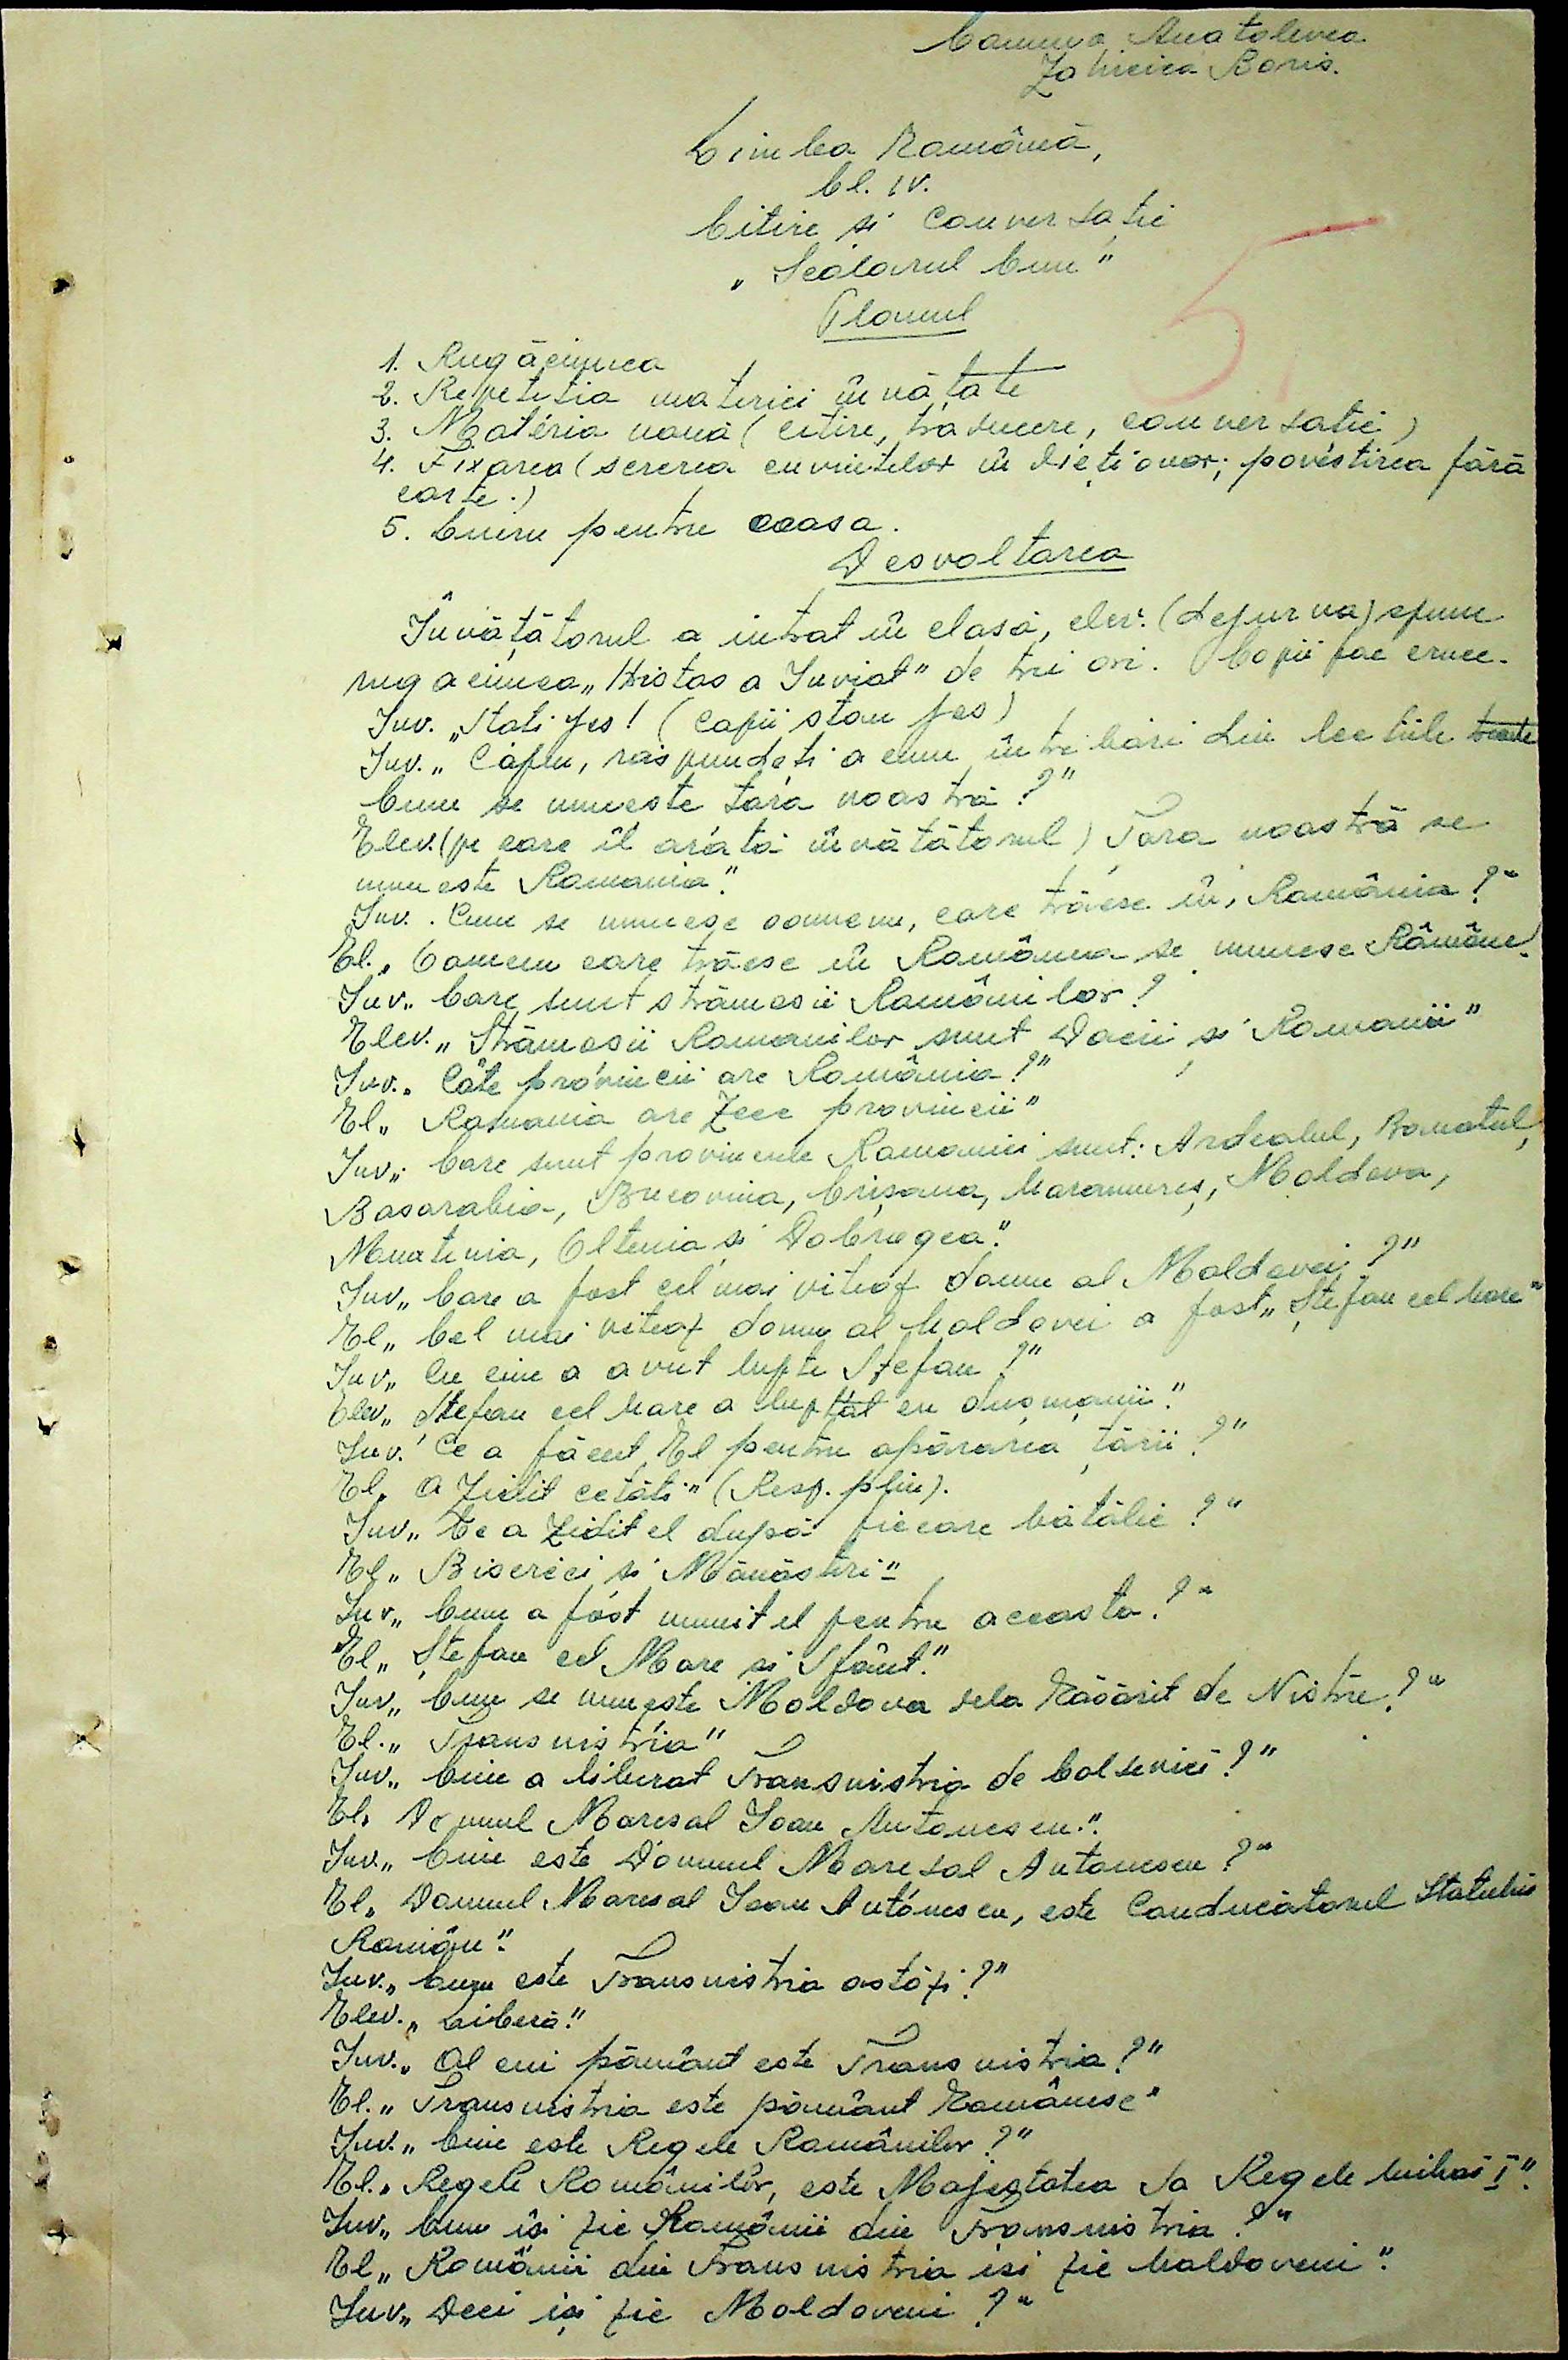 Comuna Anatolievca
Zahicica Boris.
Limba Română,
Cl. IV.
Citire si Conversatie
„Scolarul bun"
Planul
5
1. Rugăciunea
2. Repetitia materiei învătate
3. Materia nouă (citire, traducere, conversatie)
4. Fixarea (scrierea cuvintelor în dictionar; povestirea fără
carte.)
5. Lucru pentru acasa.
Desvoltarea
Învătătorul a intrat în clasă, elev. (dejurna) spune
rugaciunea „Hristos a Inviat" de trei ori. Copii fac cruce.
Inv. „Stati jos! (Copii stau jos)
Inv. „Copii, răspundeti acum întrebări din lectiile trecute
Cum se numeste tara noastră?"
Elev. (pe care îl arată învătătorul) Tara noastră se
numeste Romania".
Inv. Cum se numesc oamenii, care trăesc în România?"
El. „Oameni care trăesc în România se numesc Români".
Inv. „Care sunt strămosii Românilor?
Elev. „Strămosii Romanilor sunt Dacii și Romanii"
Inv. „Câte provincii are România?"
El. „Romania are zece provincii"
Inv. „Care sunt provinciile Romaniei sunt: Ardealul, Banatul,
Basarabia, Bucovina, Crișana, Maramureș, Moldova,
Muntenia, Oltenia si Dobrogea".
Inv. „Care a fost cel mai viteaz domn al Moldovei?"
El. „Cel mai viteaz domn al Moldovei a fost „Ștefan cel Mare"
Inv. „Cu cine a avut lupte Ștefan?"
Elev. „Ștefan cel Mare a luptat cu dușmanii".
Inv. Ce a făcut El pentru apărarea țării?"
El. „A zidit cetăti" (Resp. plin).
Inv. „Ce a zidit el după fiecare bătălie?"
El. „Biserici si Mănăstiri"
Inv. „Cum a fost numit el pentru aceasta?"
El. „Ștefan cel Mare si Sfânt."
Inv. „Cum se numeste Moldova dela Răsărit de Nistru?"
El. „Transnistria"
Inv. „Cine a liberat Transnistria de bolsevici?"
El. „Domnul Maresal Ioan Antonescu".
Inv. „Cine este Domnul Maresal Antonescu?"
El. „Domnul Maresal Ioan Antonescu, este Conducătorul Statului
Român".
Inv. „Cum este Transnistria astăzi?"
Elev. „Liberă".
Inv. „Al cui pământ este Transnistria?"
El. „Transnistria este pământ Românesc"
Inv. „Cine este Regele Românilor?"
El. „Regele Românilor, este Majestatea Sa Regele Mihai I".
Inv. „Cum îsi zic Românii din Transnistria?"
El. „Românii din Transnistria isi zic Moldoveni".
Inv. „Deci iși zic Moldoveni?"